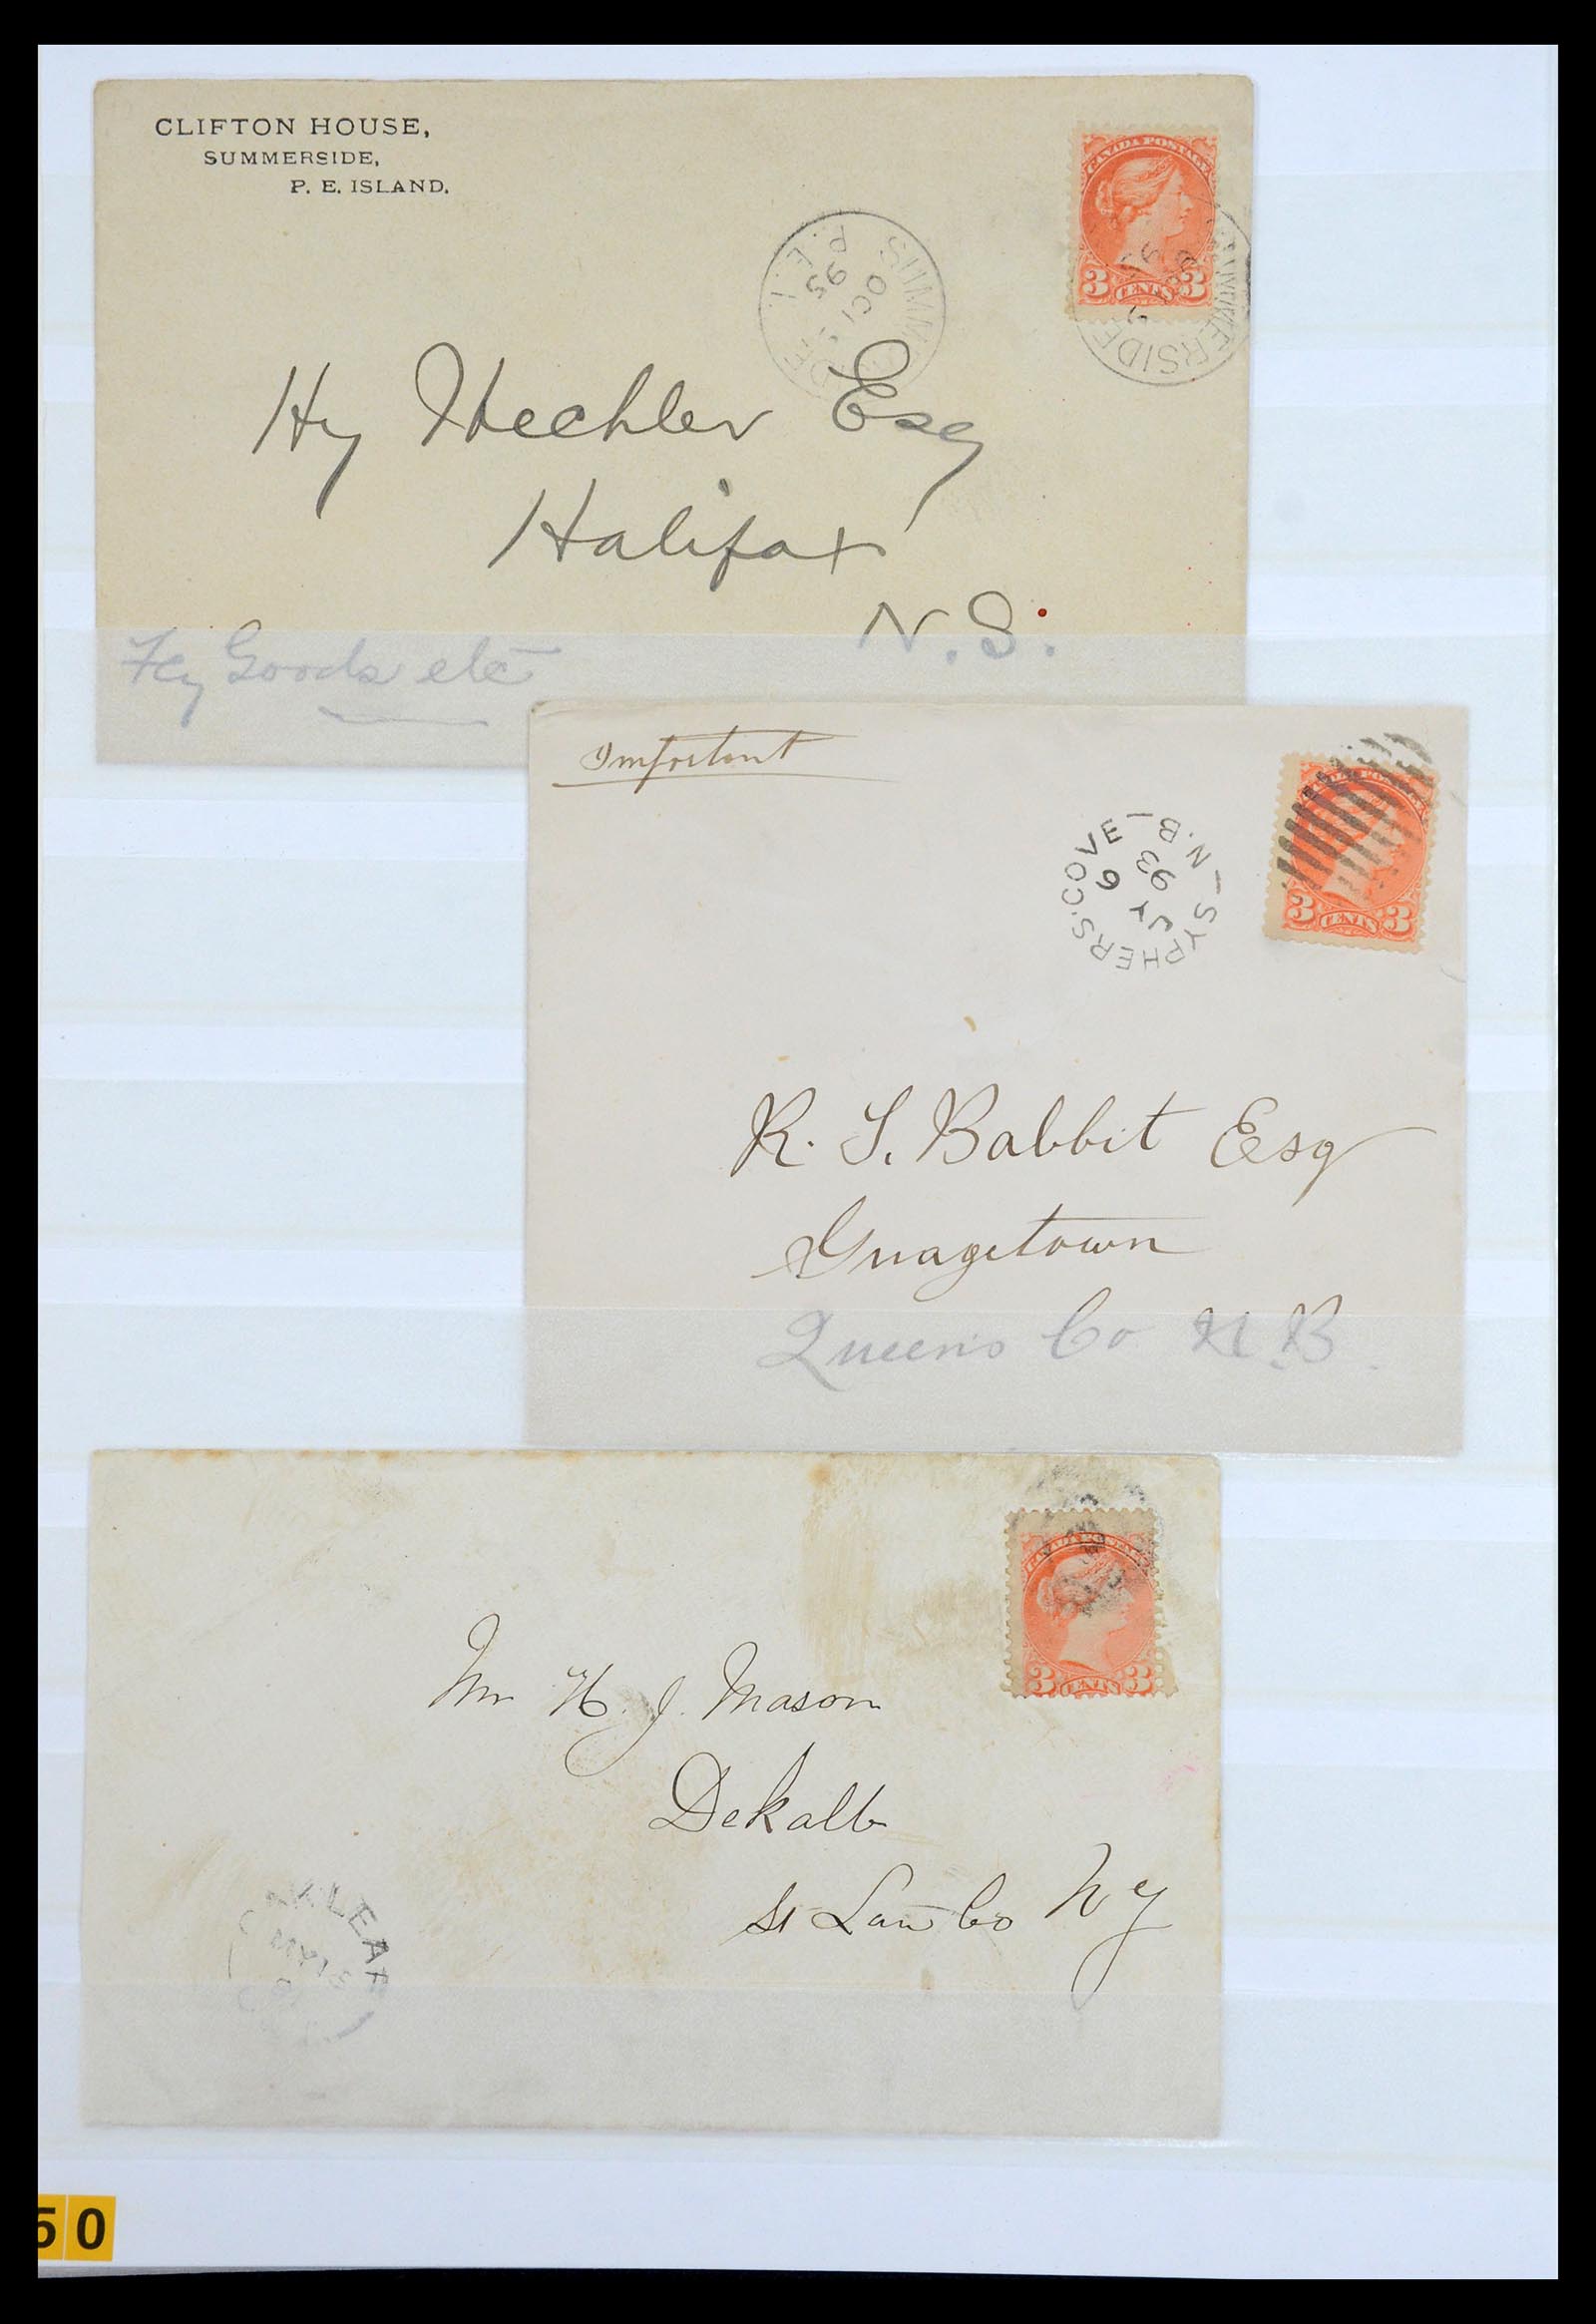 CLIFTON HOUSE,
SUMMERSIDE,
P. E. ISLAND.
CANADA POSTAGE
3 CENTS 3
SUMMERSIDE
P.E.I
OC
95
Hy Hechler Esq
Halifax
N.S.
Fcy Goods etc
Important
3 CENTS 3
SYPHERS.COVE
N.B
JY
6
93
R. S. Babbit Esq
Guagetown
Queens Co N.B.
CANADA POSTAGE
3 CENTS 3
Mr H. J. Mason
Dekalb
St Law Co N Y
LEAF
MY 15
50